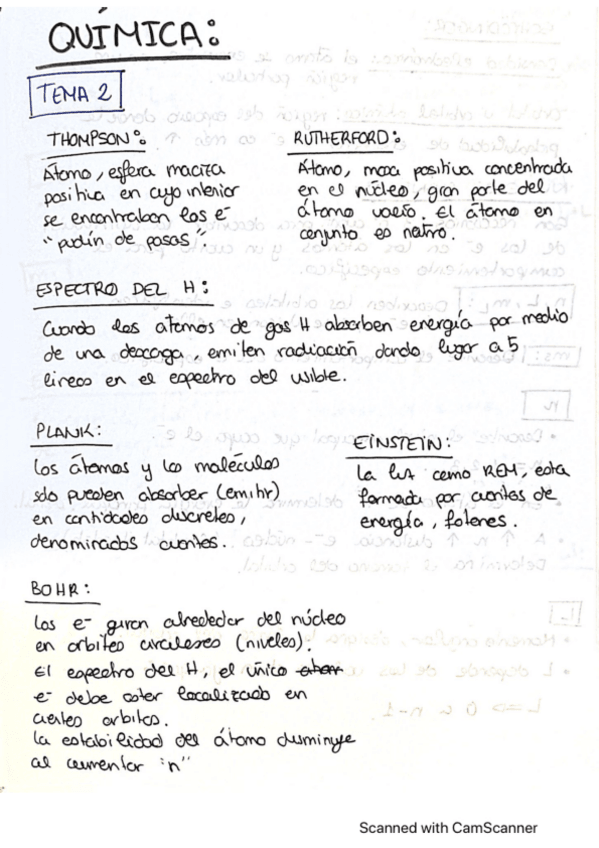 QUÍMICA:
TEMA 2
THOMPSON:
Átomo, esfera maciza
positiva en cuyo interior
se encontraban los e-
"pudín de pasas".
RUTHERFORD:
Átomo, masa positiva concentrada
en el núcleo, gran parte del
átomo vacío. El átomo en
conjunto es neutro.
ESPECTRO DEL H:
Cuando los átomos de gas H absorben energía por medio
de una descarga, emiten radiación dando lugar a 5
líneas en el espectro del visible.
PLANK:
Los átomos y las moléculas
sólo pueden absorber (emitir)
en cantidades discretas,
denominadas cuantos.
EINSTEIN:
La luz como REM, esta
formada por cuantos de
energía, fotones.
BOHR:
Los e- giran alrededor del núcleo
en orbitas circulares (niveles).
El espectro del H, el único
e- debe estar localizado en
ciertas orbitas.
La estabilidad del átomo disminuye
al aumentar "n"
Scanned with CamScanner